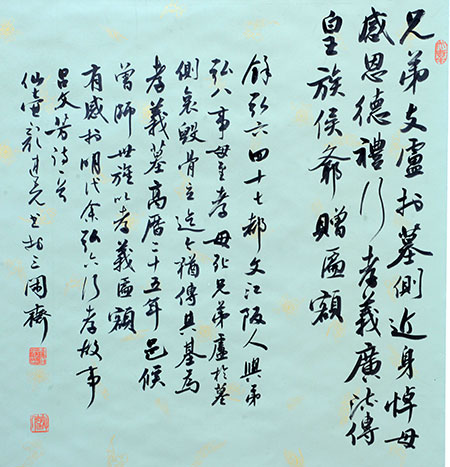 兄弟支盧於墓側近身悼母
感恩德禮行孝義廣流傳
皇族侯爺贈匾額
餘弘六四十七都文江阪人與弟
弘八事母至孝母歿兄弟廬於墓
側哀毀骨立迄今猶傳其墓爲
孝義墓萬曆三十五年邑候
曾師世旌以孝義匾額
有感於明代余弘六行孝故事
呂文芳詩一首
仙建亮書於三齋